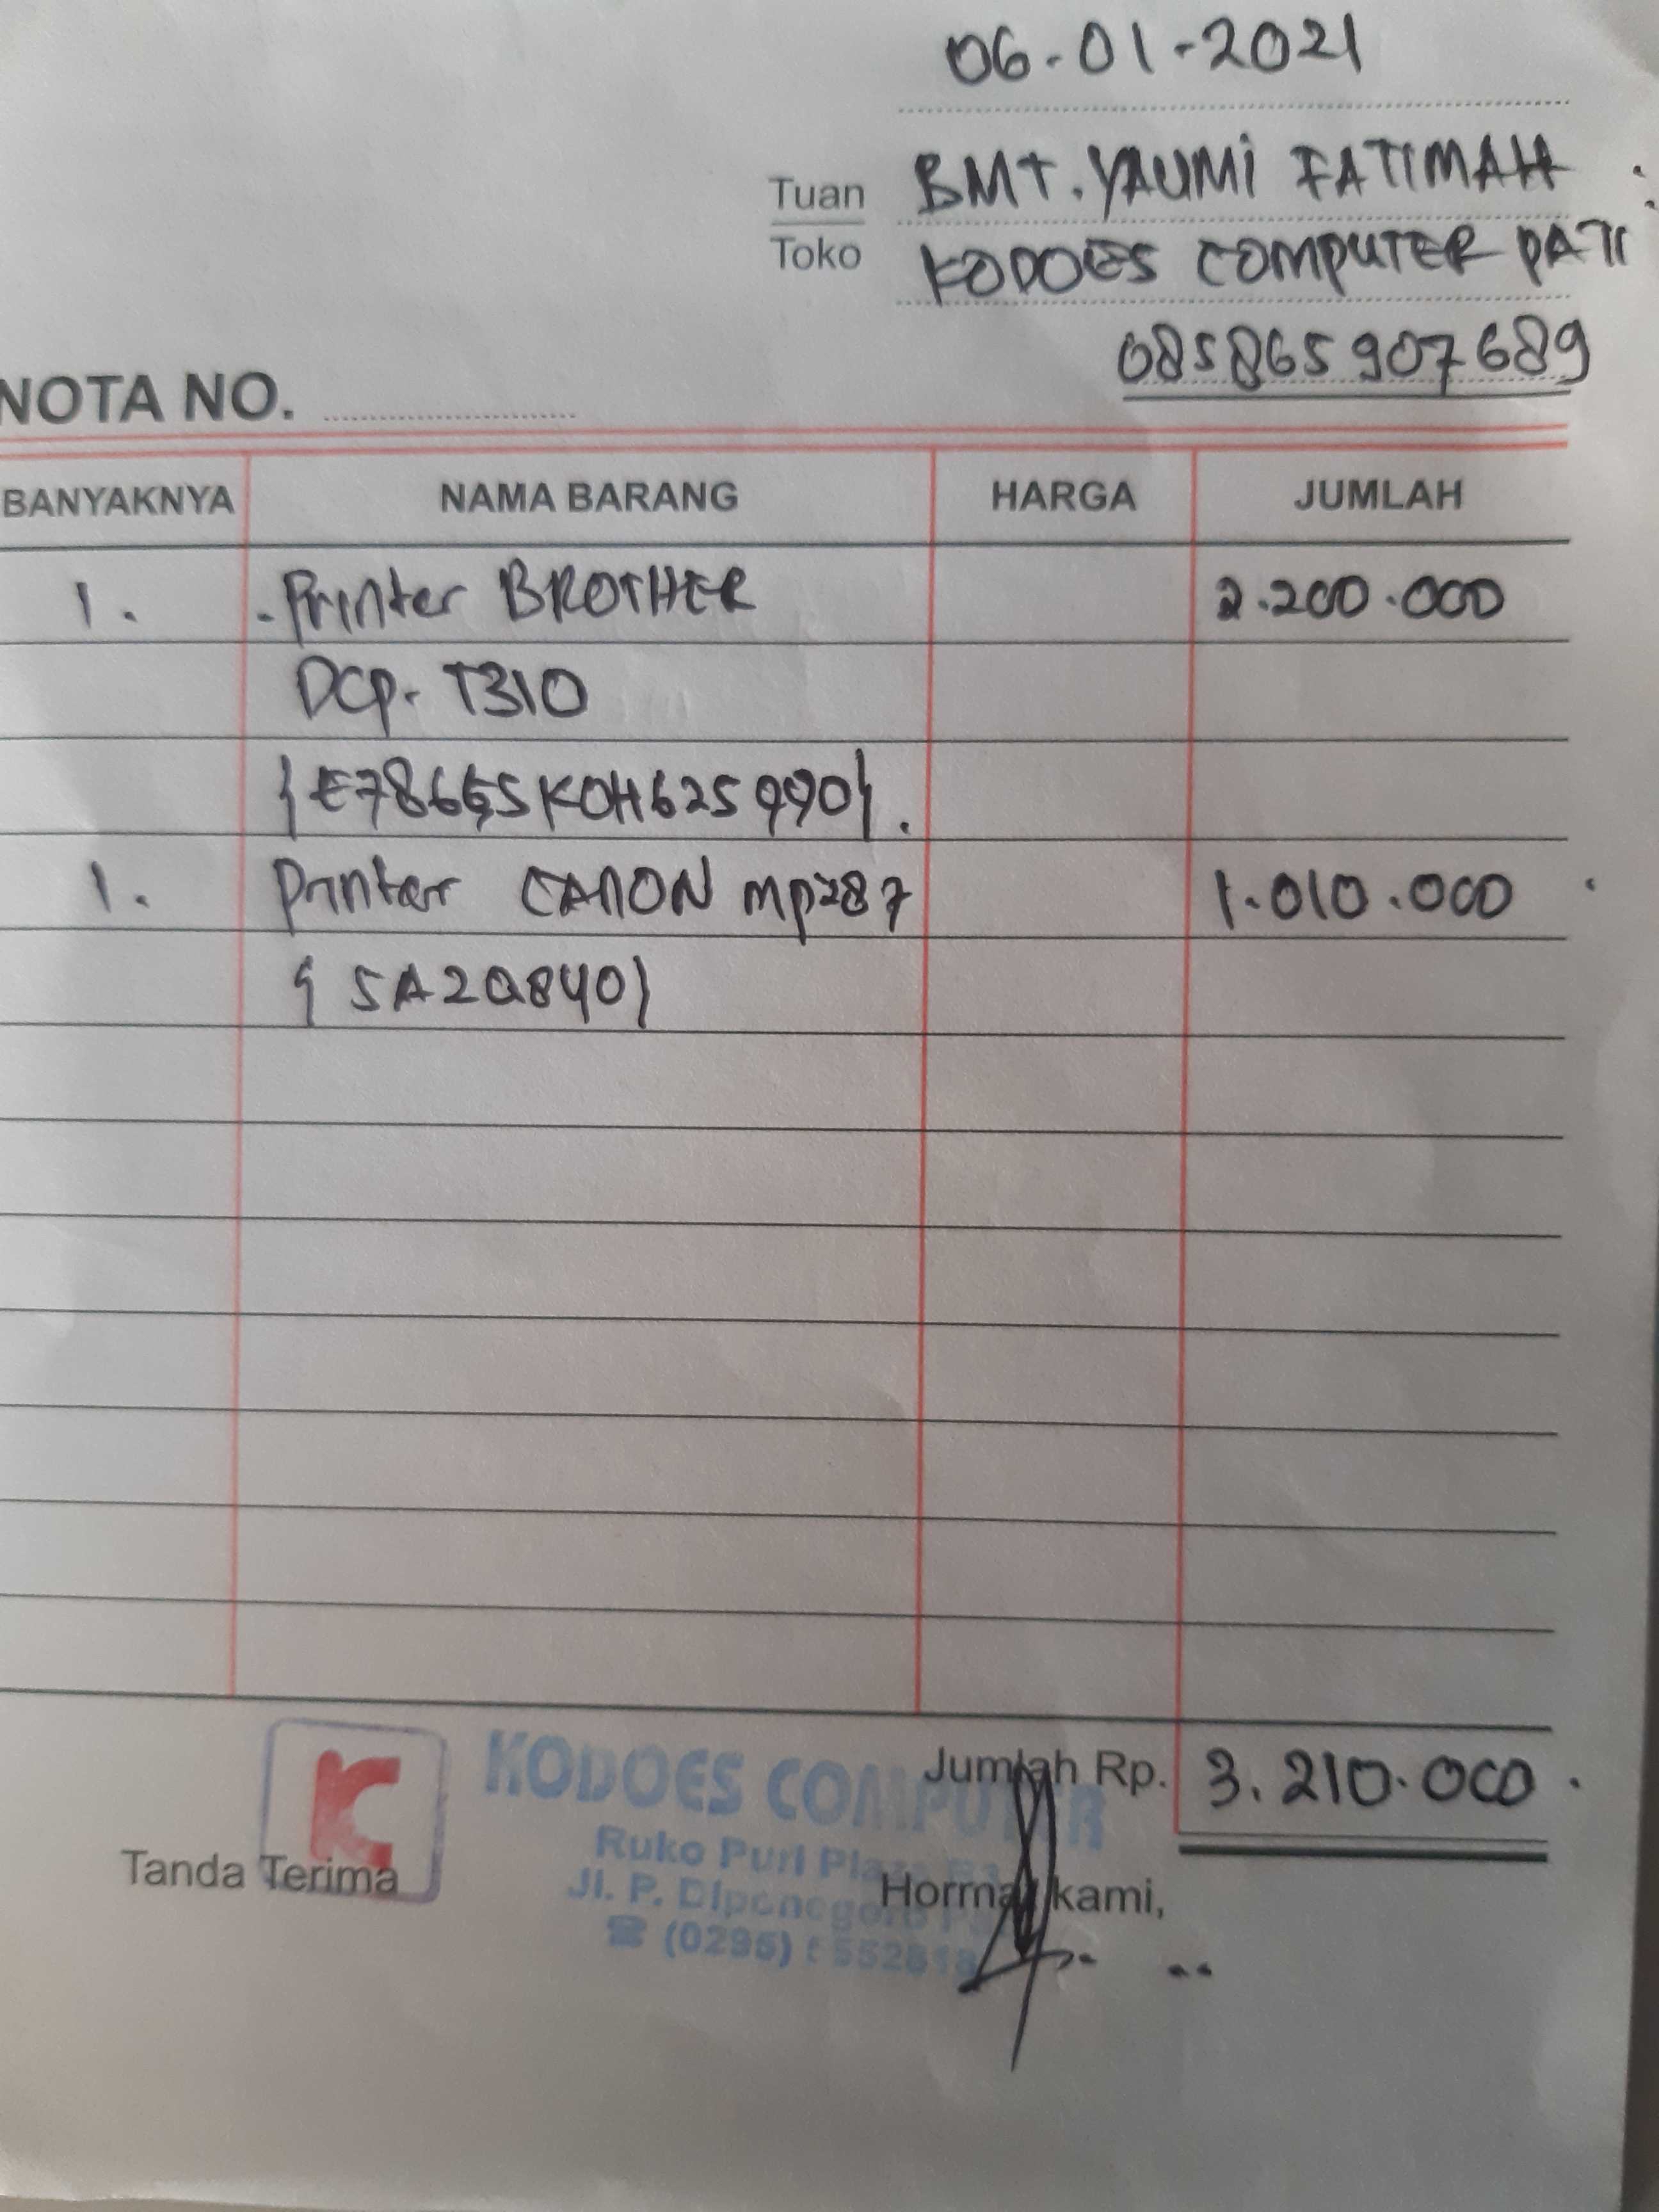 06-01-2021
Tuan BMT. YAUMI FATIMAH
Toko KODOES COMPUTER PATI
085865907689
NOTA NO.
BANYAKNYA NAMA BARANG HARGA JUMLAH
1. - Printer BROTHER 2.200.000
DCP- T310
{E78665K0H625990}.
1. Printer CANON MP287 1.010.000
{SA2Q840}
Jumlah Rp. 3.210.000
K
KODOES COMPUTER
Ruko Puri Plaza
Jl. P. Diponegoro
(0295)
Tanda Terima Hormat kami,